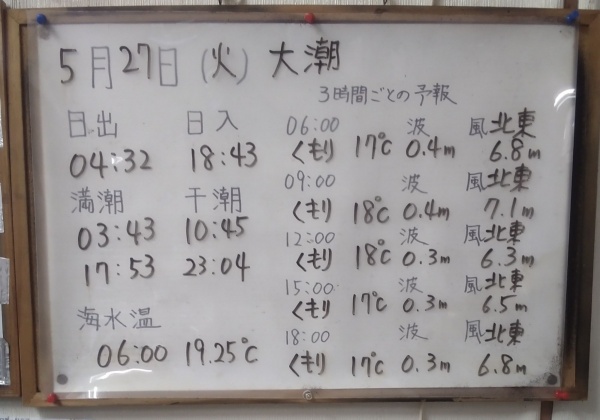 5月27日(火)大潮
3時間ごとの予報
日出 日入
04:32 18:43
満潮 干潮
03:43 10:45
17:53 23:04
海水温
06:00 19.25℃
06:00 波 風北東
くもり 17℃ 0.4m 6.8m
09:00 波 風北東
くもり 18℃ 0.4m 7.1m
12:00 波 風北東
くもり 18℃ 0.3m 6.3m
15:00 波 風北東
くもり 17℃ 0.3m 6.5m
18:00 波 風北東
くもり 17℃ 0.3m 6.8m